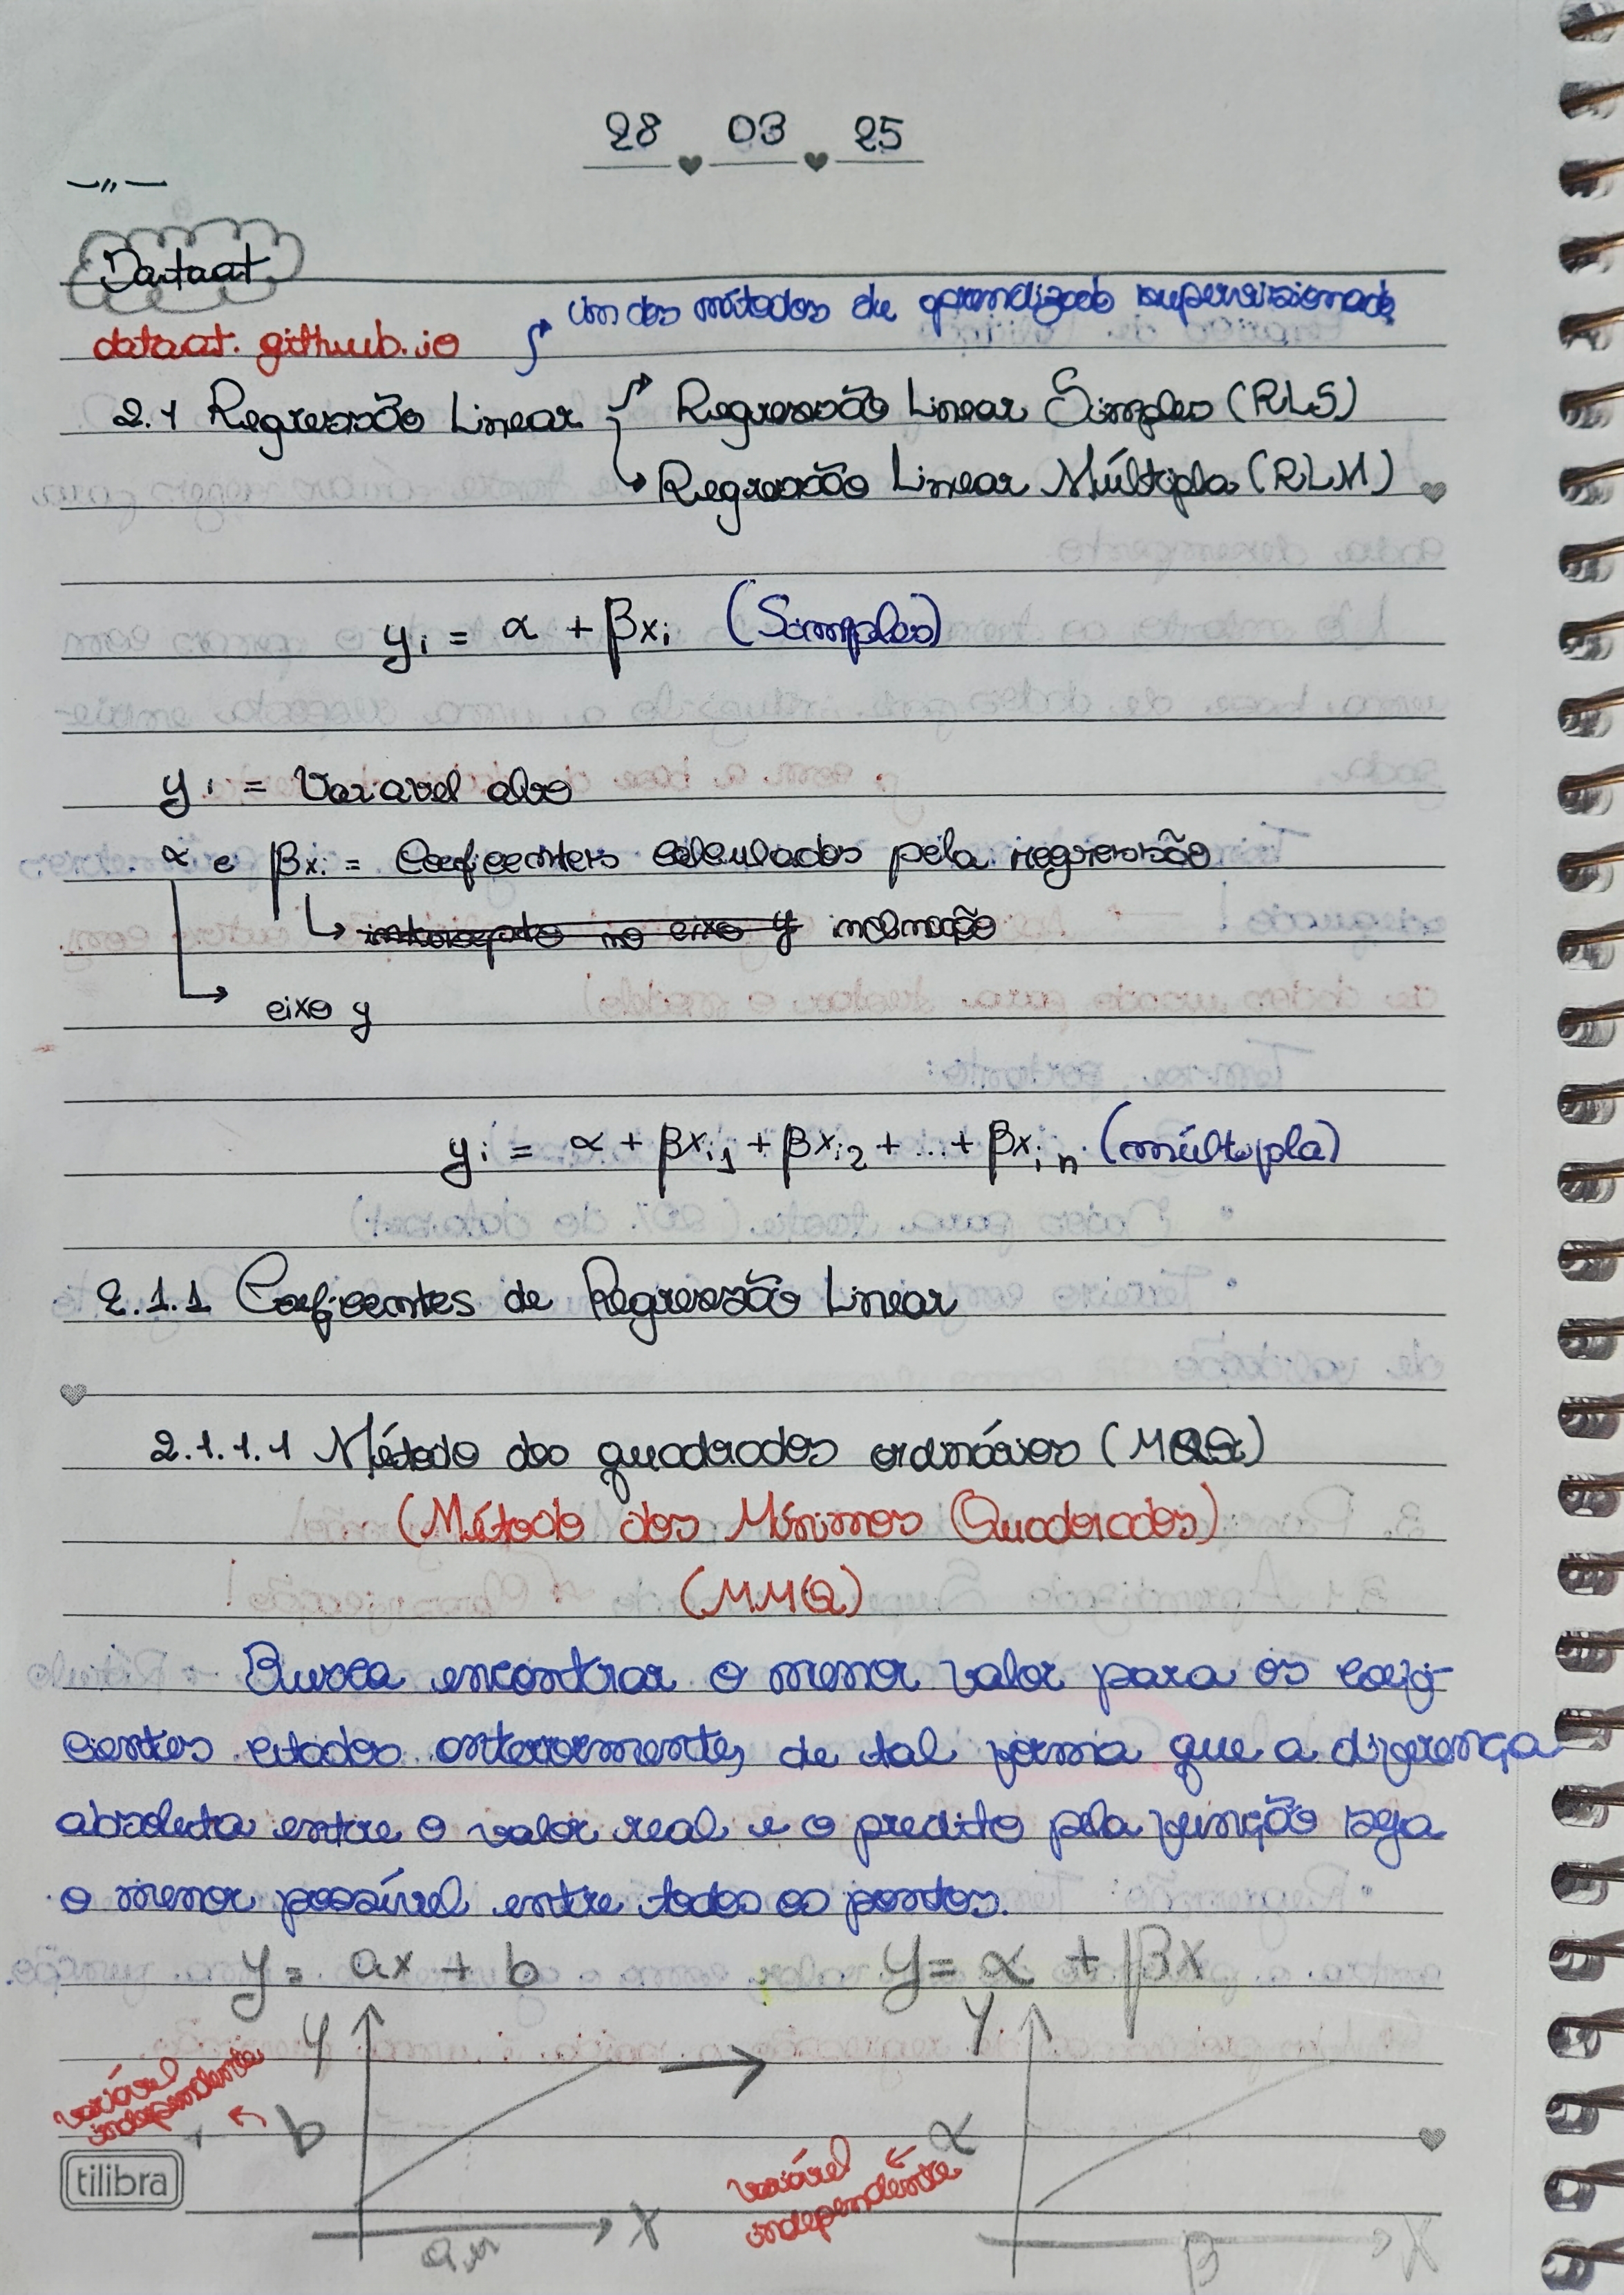 28 03 25
Dataat
dataat.github.io
um dos métodos de aprendizado supervisionado
2.1 Regressão Linear → Regressão Linear Simples (RLS)
↳ Regressão Linear Múltipla (RLM)
yi = α + βxi (Simples)
yi = Variavel alvo
α e βxi = Coeficientes calculados pela regressão
↳ intercepto no eixo y inclinação
↳ eixo y
yi = α + βxi1 + βxi2 + ... + βxin (múltipla)
2.1.1 Coeficientes de Regressão Linear
2.1.1.1 Método dos quadrados ordinários (MQO)
(Método dos Mínimos Quadrados)
(MMQ)
Busca encontrar o menor valor para os coefi-
cientes citados anteriormente, de tal forma que a diferença
absoluta entre o valor real e o predito pela função seja
o menor possível entre todos os pontos.
y = ax + b y = α + βx
y → y
variável
independente ← b α
variável
independente ←
tilibra
x β x